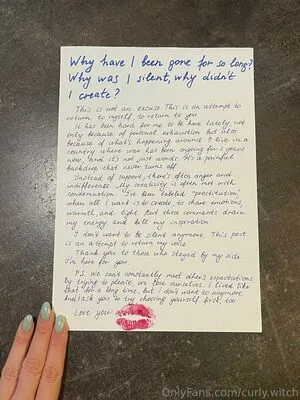 Why have I been gone for so long?
Why was I silent, why didn't
I create?
This is not an excuse This is an attempt to
return to myself, to return to you
It has been hard for me to be here lately, not
only because of personal exhaustion but also
because of what's happening around I live in a
country where war has been ongoing for 3 years
now, and it's not just words. It's a painful
backdrop that never turns off
Instead of support, there's often anger and
indifference. My creativity is often met with
condemnation I've been labeled "prostitution"
when all I want is to create to share emotions,
warmth, and light But these comments drain
my energy and kill my inspiration
I don't want to be silent anymore. This post
is an attempt to return my voice.
Thank you to those who stayed by my side
I'm here for you
P.S. We can't constantly meet other's expectations
by trying to please, we lose ourselves I lived like
that for a long time, but I don't want to anymore
And I ask you to try choosing yourself first, too
Love you
OnlyFans.com/curly.witch